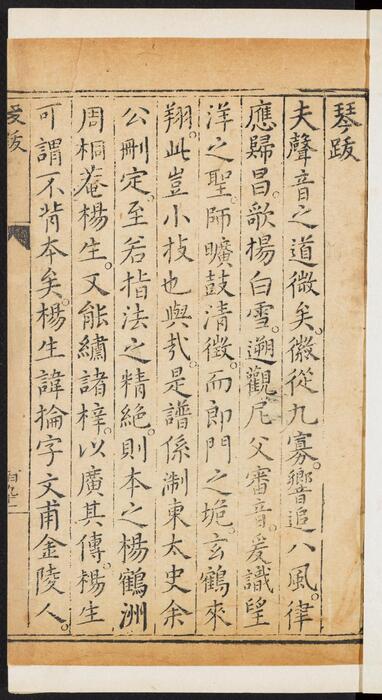 琴跋
夫聲音之道微矣。徽從九寡。響追八風。律
應歸昌。歌楊白雪。遡觀尼父審音。爰識望
洋之聖。師曠鼓清徵。而郎門之垝。玄鶴來
翔。此豈小技也與哉。是譜係淛東太史余
公刪定。至若指法之精絕。則本之楊鶴洲
周桐菴楊生。又能繡諸梓。以廣其傳。楊生
可謂不背本矣。楊生諱掄字文甫金陵人。
跋